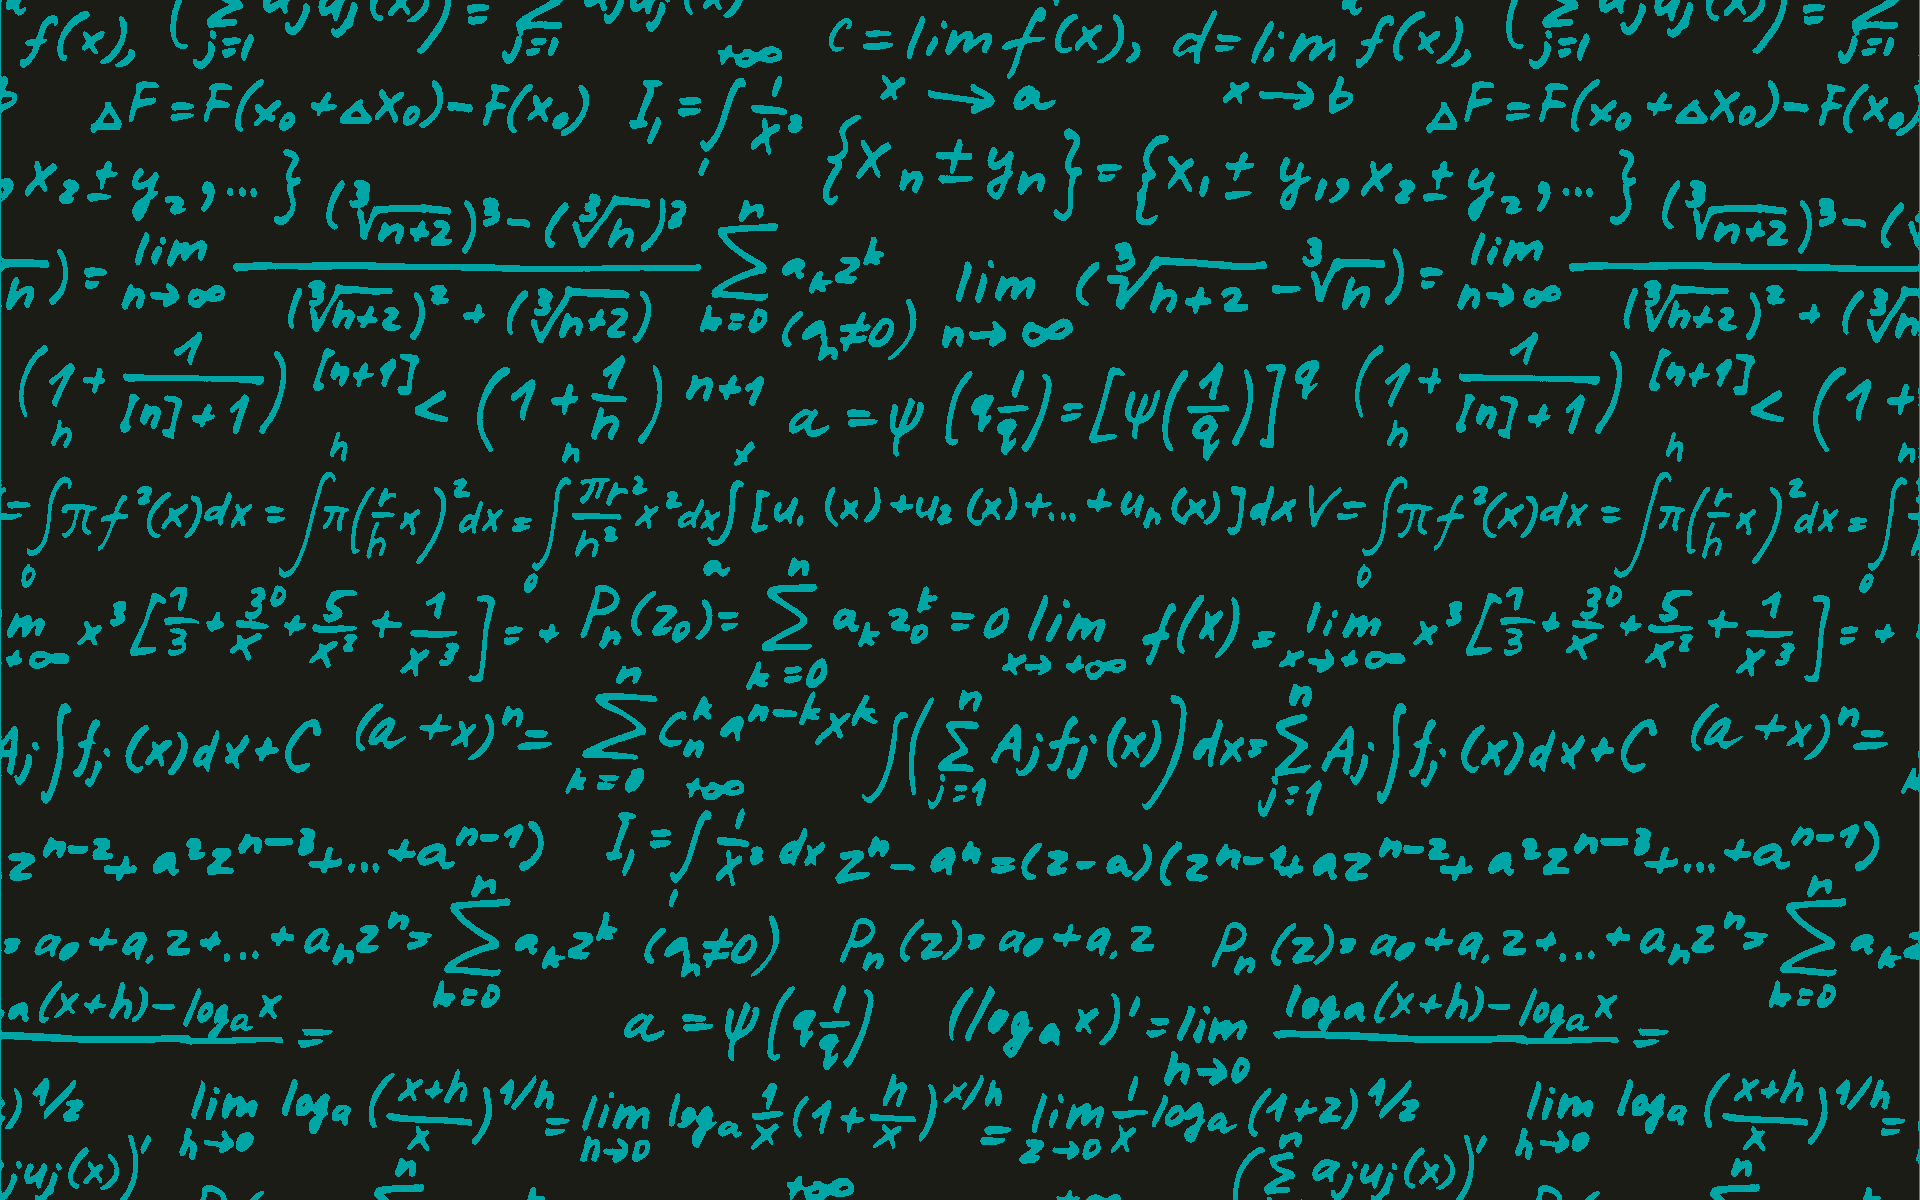 f(x), (∑ⱼ₌₁ ajuj(x)) = ∑ⱼ₌₁ ajuj(x) c = lim f(x), d = lim f(x), (∑ⱼ₌₁ ajuj(x)) = ∑ⱼ₌₁
x → a x → b
b ΔF = F(x₀ + Δx₀) - F(x₀) I₁ = ∫₁^{+∞} 1/x² ΔF = F(x₀ + Δx₀) - F(x₀)
, x₂ ± y₂, ... } {xₙ ± yₙ} = {x₁ ± y₁, x₂ ± y₂, ... }
n) = lim_{n→∞} ((∛(n+2))³ - (∛n)³)/((∛(n+2))² + (∛(n+2)) ∑_{k=0}^{n} aₖzᵏ (aₙ≠0) lim_{n→∞} (∛(n+2) - ∛n) = lim_{n→∞} (∛(n+2))³ - ( / (∛(n+2))² + (∛n
(1 + 1/([n]+1))ₙ [n+1] < (1 + 1/n) n+1 a = ψ(q 1/q) = [ψ(1/q)]^q (1 + 1/([n]+1))ₙ [n+1] < (1 +
= ∫₀ πf²(x)dx = ∫^h π(r/h x)²dx = ∫₀^n πr²/h² x²dx ∫ₐ^x [u₁(x) + u₂(x) + ... + uₙ(x)]dx V = ∫₀ πf²(x)dx = ∫^h π(r/h x)²dx = ∫₀^n
m_{+∞} x³[1/3 + 30/x + 5/x² + 1/x³] = + Pₙ(z₀) = ∑_{k=0}^{n} aₖz₀ᵏ = 0 lim_{x→+∞} f(x) = lim_{x→+∞} x³[1/3 + 30/x + 5/x² + 1/x³] = +
Aj∫fj(x)dx + C (a + x)ⁿ = ∑_{k=0}^{n} Cₙᵏ aⁿ⁻ᵏxᵏ ∫(∑_{j=1}^{n} Ajfj(x))dx = ∑_{j=1}^{n} Aj∫fj(x)dx + C (a + x)ⁿ =
zⁿ⁻² + a²zⁿ⁻³ + ... + aⁿ⁻¹) I₁ = ∫₁^{+∞} 1/x² dx zⁿ - aⁿ = (z - a)(zⁿ⁻¹ + azⁿ⁻² + a²zⁿ⁻³ + ... + aⁿ⁻¹)
= a₀ + a₁z + ... + aₙzⁿ = ∑_{k=0}^{n} aₖzᵏ (aₙ≠0) Pₙ(z) = a₀ + a₁z Pₙ(z) = a₀ + a₁z + ... + aₙzⁿ = ∑_{k=0}^{n} aₖz
a(x+h) - logₐx = a = ψ(q 1/q) (logₐx)' = lim_{h→0} logₐ(x+h) - logₐx =
)^{1/2} lim_{h→0} logₐ((x+h)/x)^{1/h} = lim_{h→0} logₐ 1/x (1 + h/x)^{x/h} = lim_{z→0} 1/x logₐ(1+z)^{1/z} lim_{h→0} logₐ((x+h)/x)^{1/h} =
juj(x))' n +∞ +∞ (∑ⁿ ajuj(x))' n